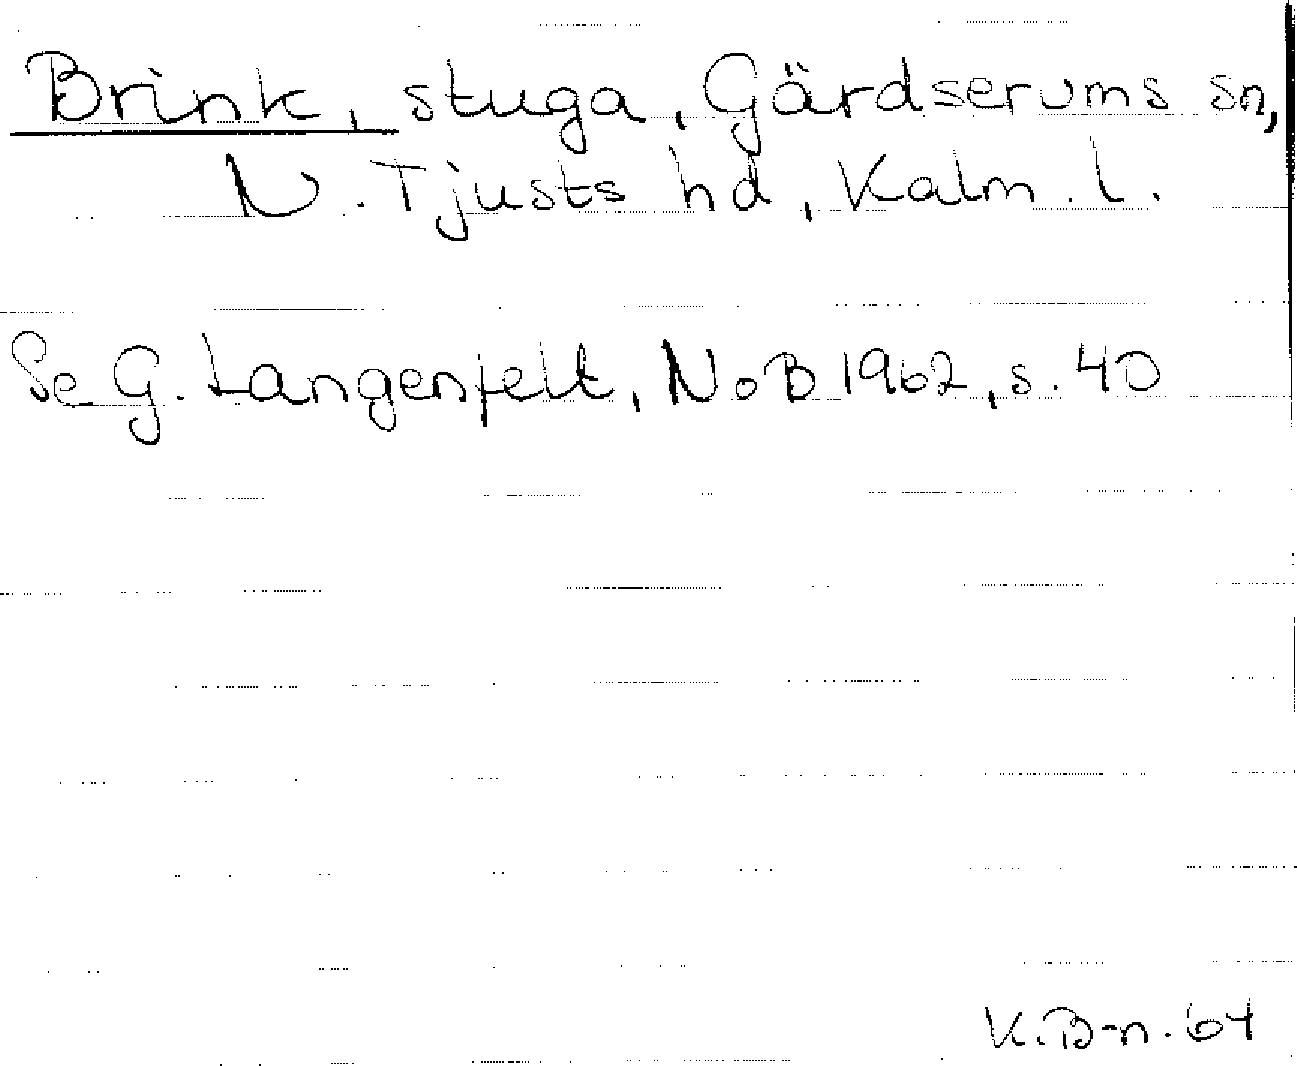 Brink, stuga, Gärdserums sn,
N. Tjusts hd, Kalm. l.
Se G. Langenfelt, NoB 1962, s. 40
K.B-n. 64